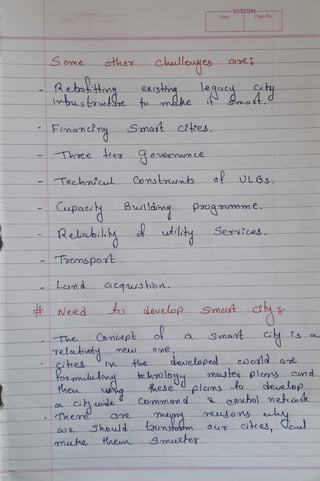 VISION
Date Page No.
Some other challenges are:
- Retrofitting existing legacy city
infrustructure to make it smart.
- Financing Smart cities.
- Three tier Governance
- Technical Constraints of ULBs.
- Capacity Building programme.
- Reliability of utility Services.
- Transport
- Land acqustion.
# Need to develop Smart city:
- The Concept of a smart city is a
relatively new one.
- cities in the developed world are
formulating tehnology master plans and
then using these plans to develop
a city wide Command & control network.
- There are many reasons why
we should transform our cities, and
make them smarter.